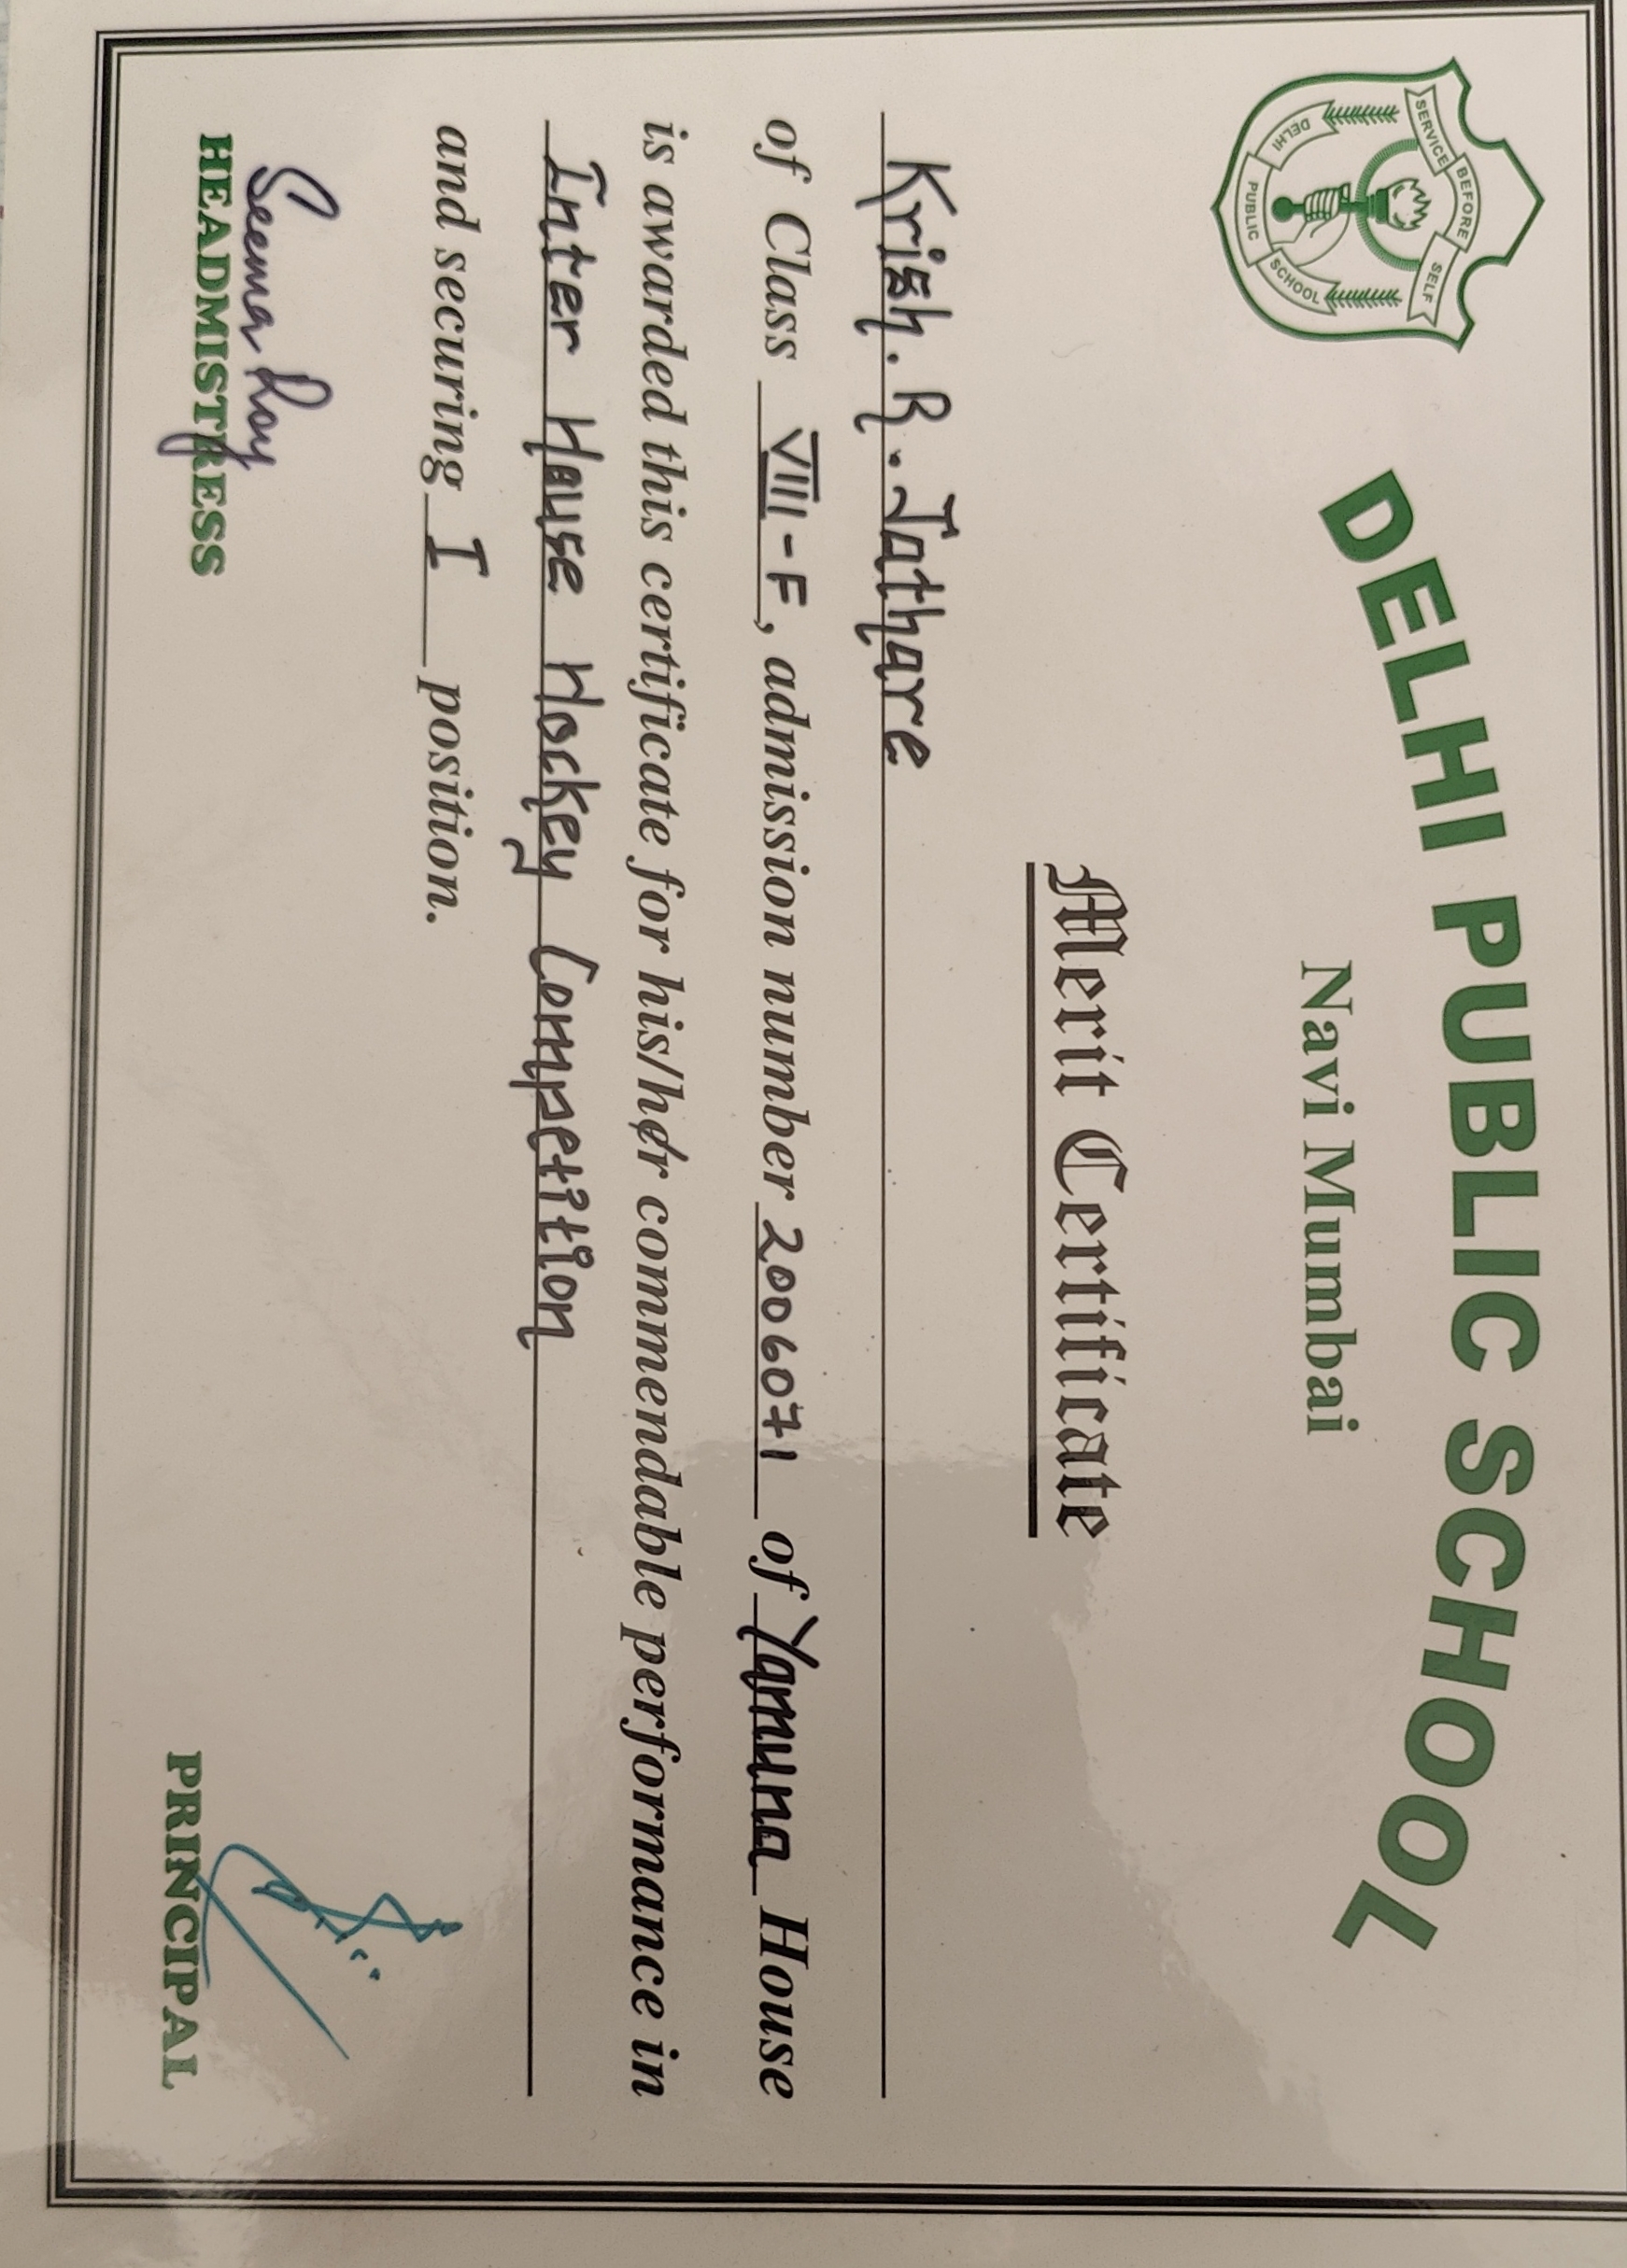 SERVICE BEFORE SELF
DELHI PUBLIC SCHOOL
DELHI PUBLIC SCHOOL
Navi Mumbai
Merit Certificate
Krish. R. Jathare
of Class VIII-F, admission number 2006071 of Yamuna House
is awarded this certificate for his/her commendable performance in
Inter House Hockey Competition
and securing I position.
Seema Roy
HEADMISTRESS
PRINCIPAL